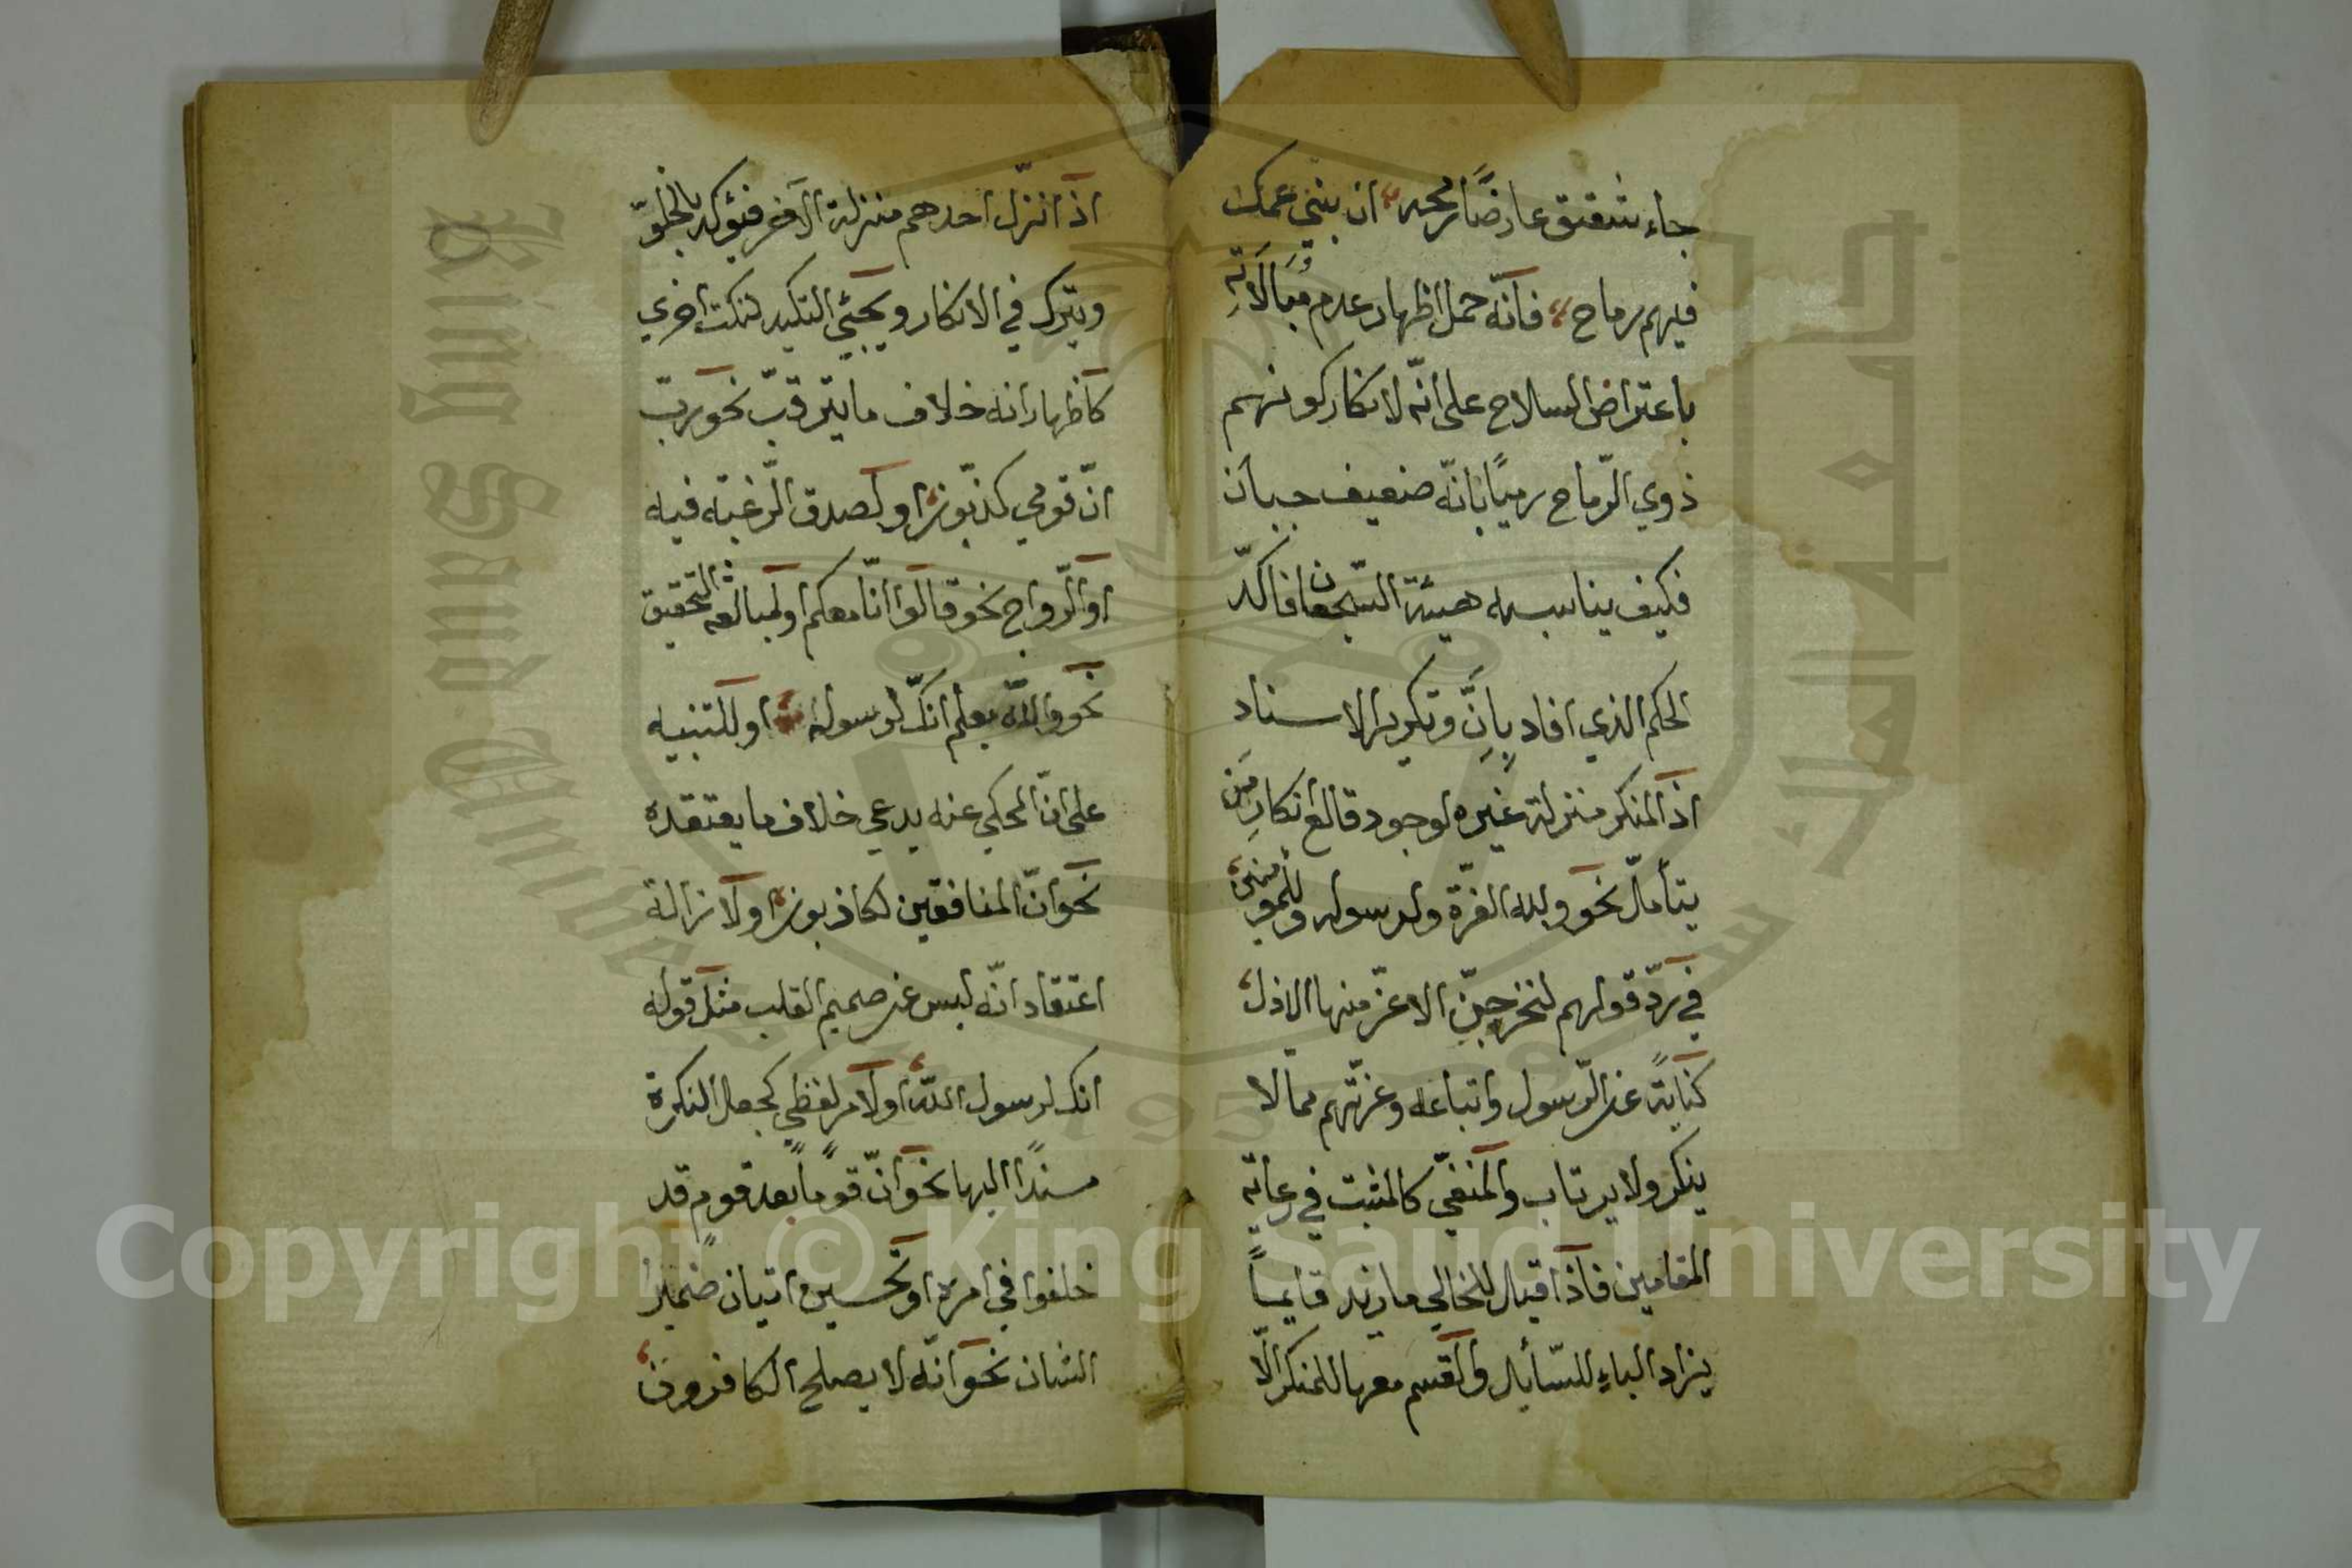 جاء شقيق عارضًا رمحه ان بني عمك
فيهم رماح فانّه حمل اظهار عدم مُبَالَاتِه
باعتراض السلاح على انّه لانكار كونهم
ذوي الرّماح رميًا بانّه ضعيف جبان
فكيف يناسبه هيئة الشّجعان فاكّد
الحكم الذي افاد بِاِنَّ وتكرير الاسناد
اذ المنكر منزلة غيره لوجود قالع انكارِ مَن
يتأمّل نحو ولله العزّة ولرسوله وللمؤمنين
في ردّ قولهم لنخرجنّ الاعزّ منها الاذل
كنايةً عن الرّسول واتباعه وعزّتهم مما لا
ينكر ولا يرتاب والمنفيّ كالمثبت في رعاية
المقامين فاذا قيل للخالي ما زيد قايماً
يزاد الباء للسّائل والقسم معها للمنكر الّا
اذ انزّل احدهم منزلة الآخر فيؤكد بالخلوّ
ويترك في الانكار ويجيئ التكيد لنكت اخري
كاظهار انه خلاف ما يترقّب نحو ربّ
انّ قومي كذبّون او لصدق الرّغبته فيه
او الرّواج نحو قالوا انّا معكم او لمبالغة التحقيق
نحو والله يعلم انّك لرسوله او للتنبيه
على انّ المحكي عنه يدعي خلاف ما يعتقده
نحو انّ المنافقين لكاذبون او لازالة
اعتقاد انّه ليس عن صميم القلب مثل قوله
انك لرسول الله او لامر لفظيّ كجعل النكرة
مسندًا اليها نحو انّ قوماً بعد قومٍ قد
خلفوا في امره او تحسين اتيان ضمير
الشان نحو انّه لا يصلح الكافرون
King Saud University
جامعة الملك سعود
1957
Copyright © King Saud University